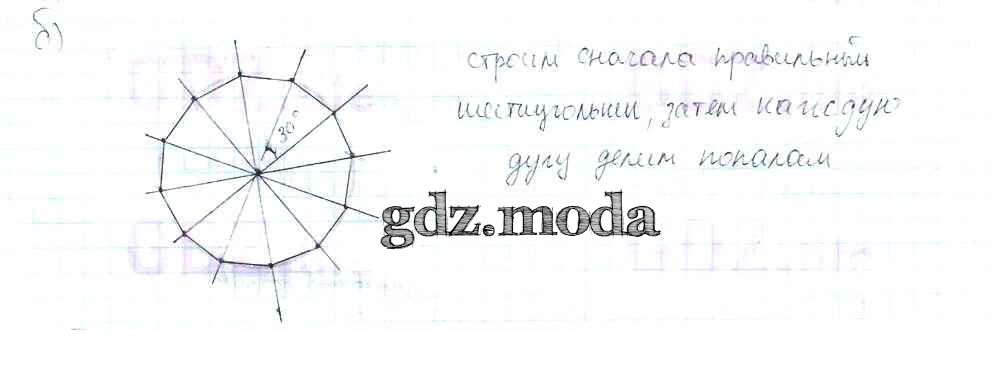 б)
строим сначала правильный
шестиугольник, затем каждую
дугу делим попалам
30°
gdz.moda